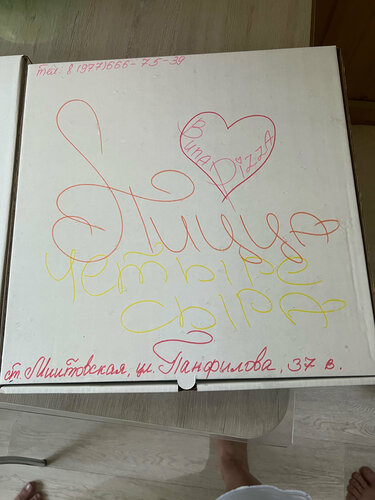 тел: 8 (977) 666-75-39
Вила
PizzA
Пицца
четыре
сыра
ст. Милютовская, ул. Панфилова, 37 в.